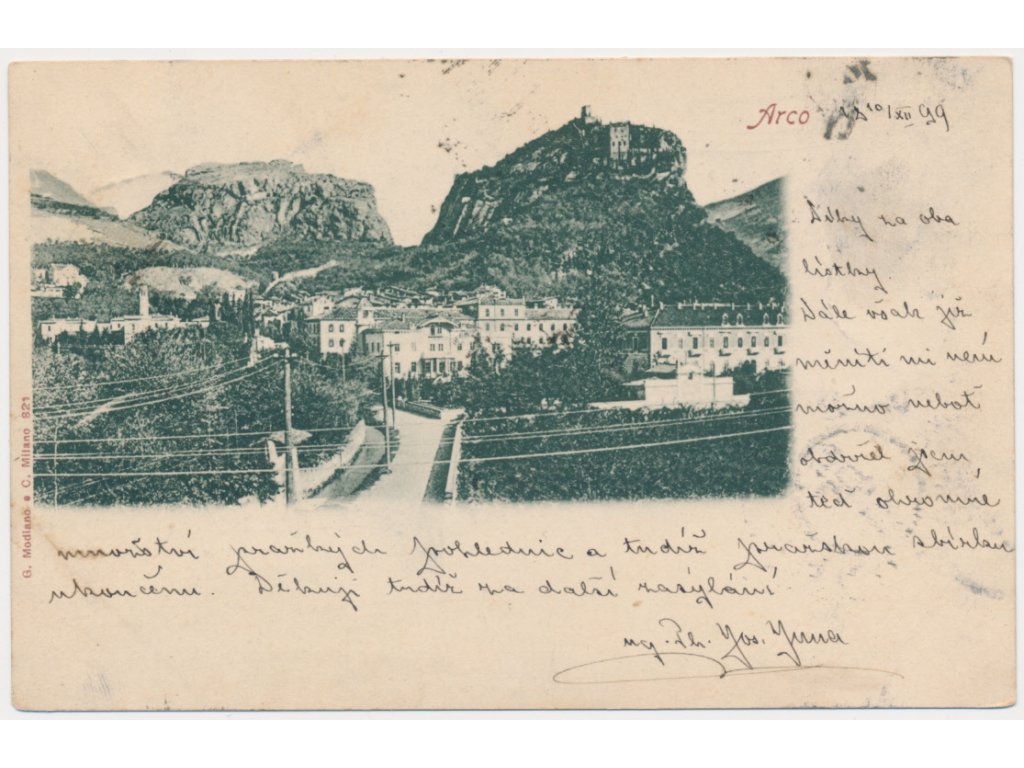 Arco 10/XII 99
Díky za oba
lístky.
Dále však již
měniti mi není
možno neboť
obdržel jsem
teď ohromné
množství pražských pohlednic a tudíž pražskou sbírku
ukončenu. Děkuji tudíž za další zasýlání
Mg. Ph. Jos.
G. Modiano e C. Milano 821